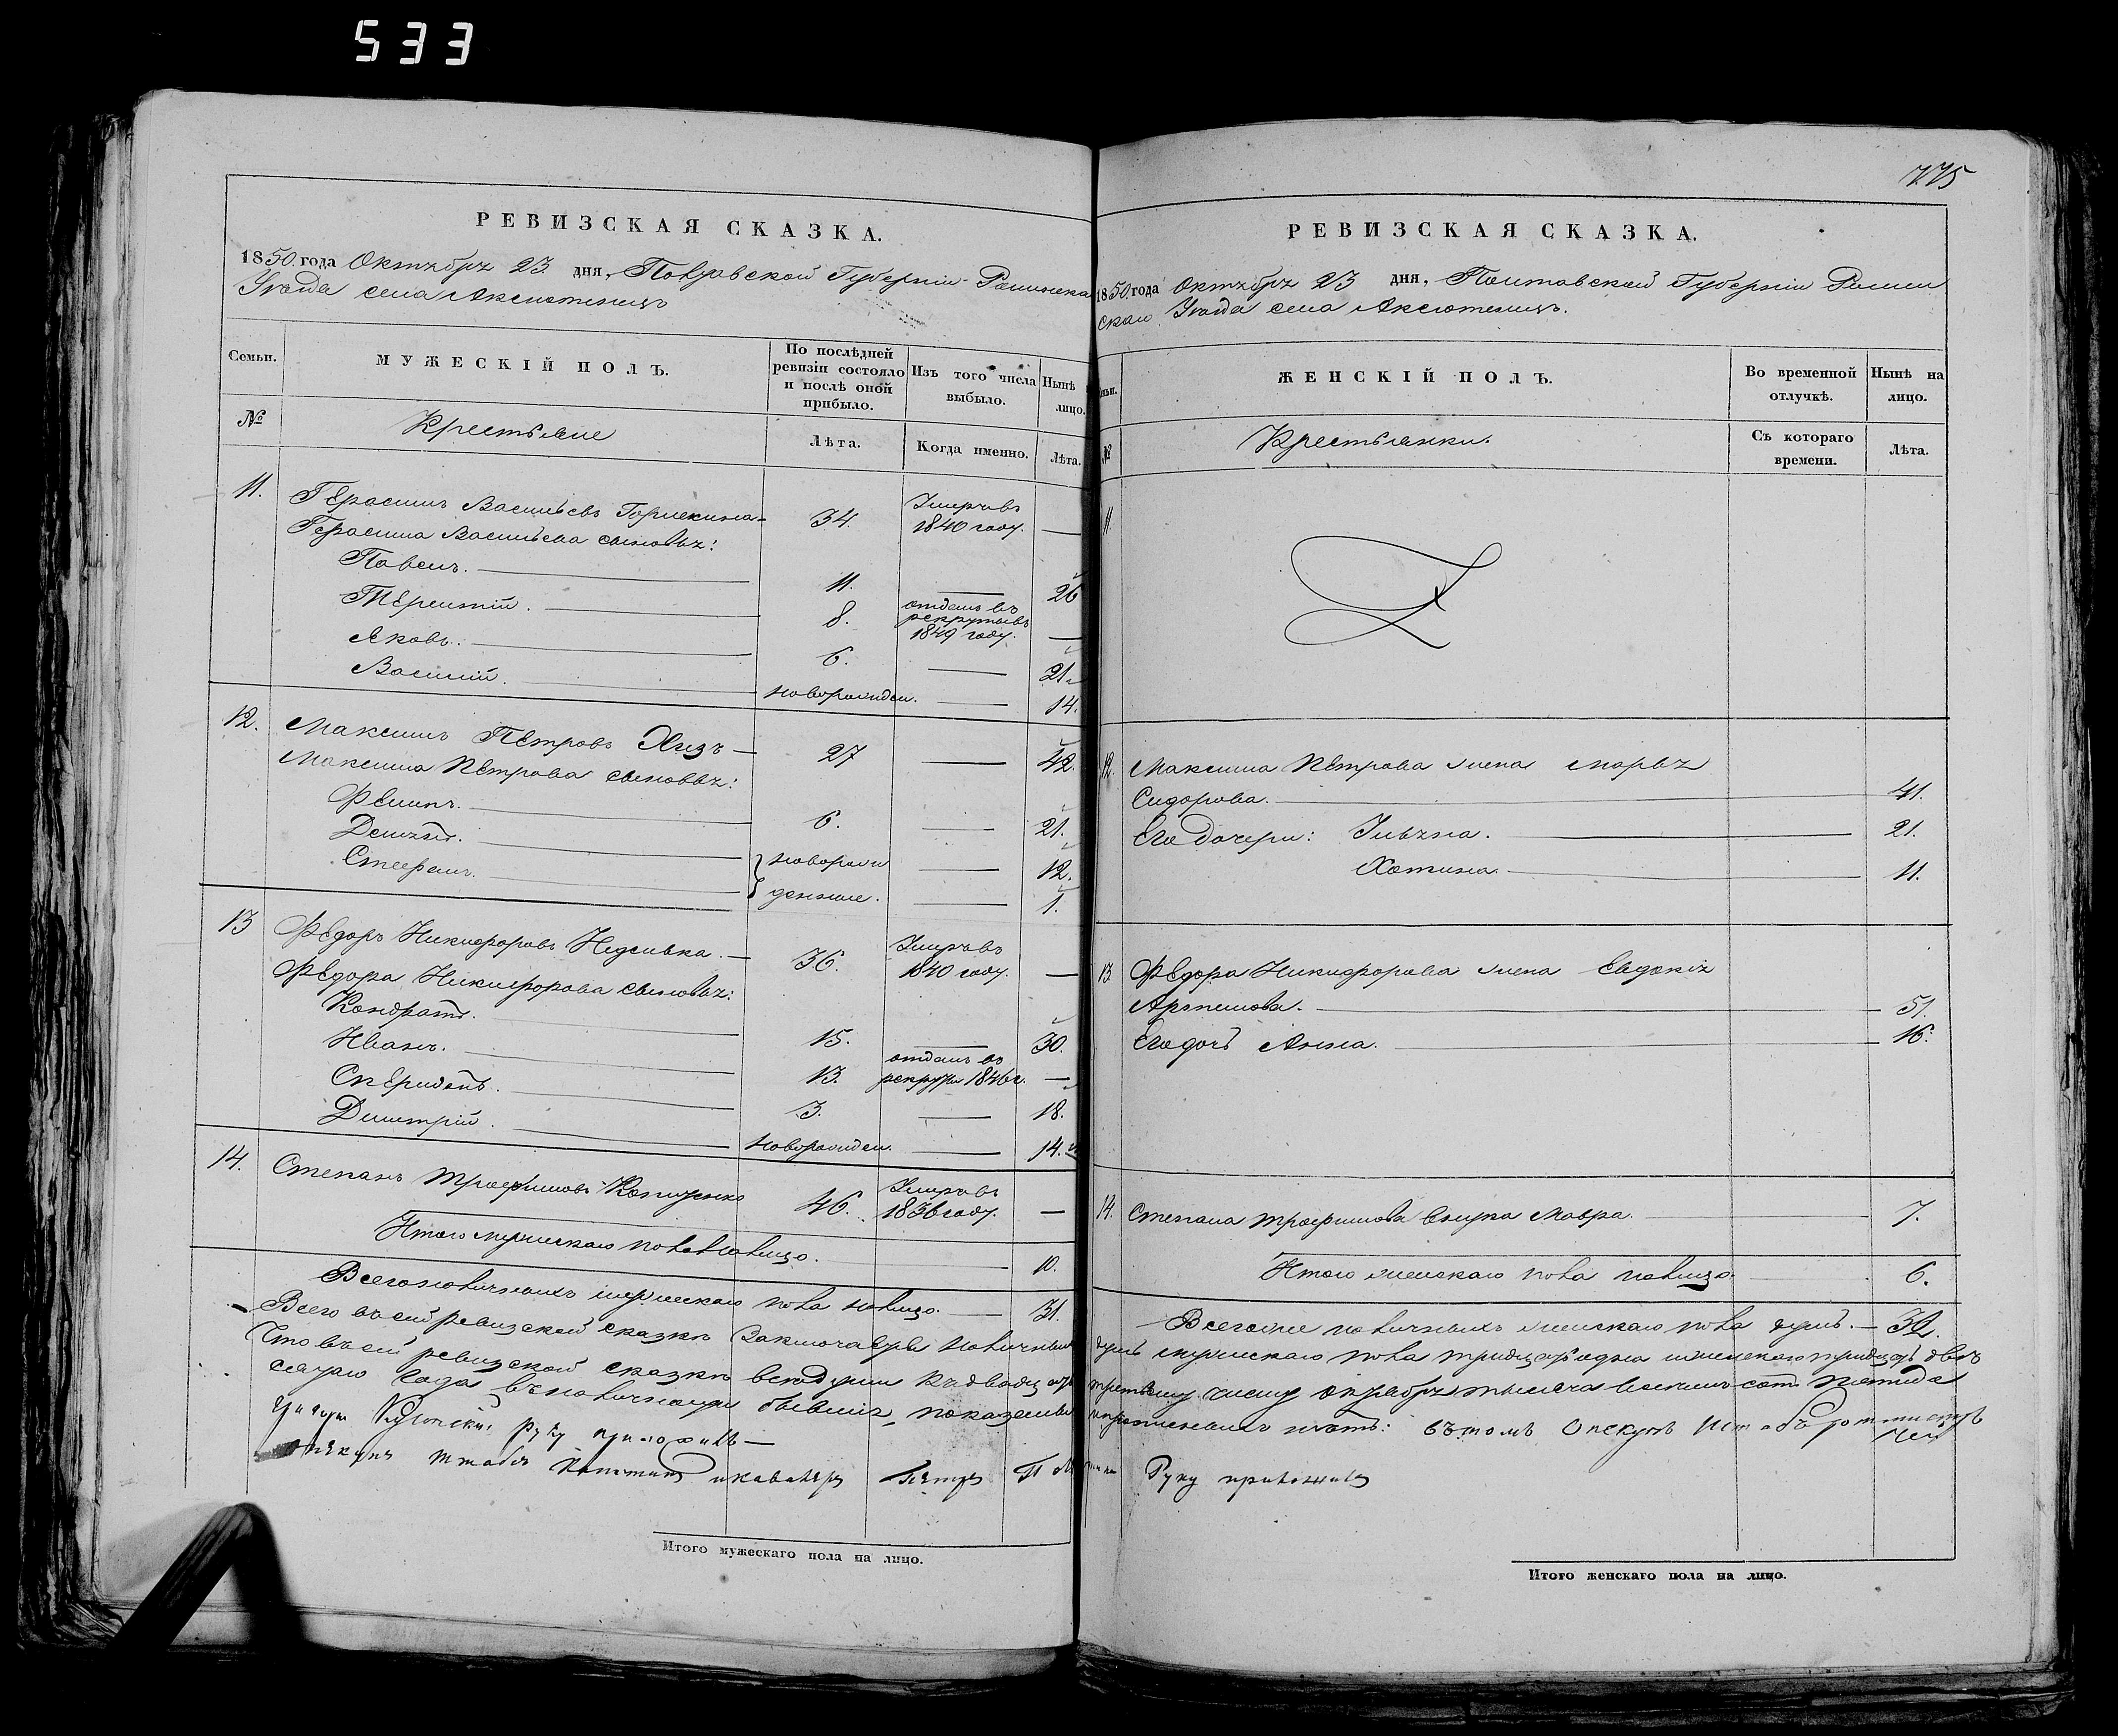 533
775
РЕВИЗСКАЯ СКАЗКА.
1850 года Октября 23 дня, Полтавской Губерніи Роменска
Уезда села Аксютенецъ
Семьи.
МУЖЕСКІЙ ПОЛЪ.
По послѣдней ревизіи состояло и послѣ оной прибыло.
Изъ того числа выбыло.
Нынѣ лицо.
№
Крестьяне
Лѣта.
Когда именно.
Лѣта.
11. Герасимъ Васильевъ 34. Умеръ въ 1840 году. —
Герасима Васильева сыновья:
Павелъ. 11. — 26
Терентій. 8. отданъ въ рекруты въ 1849 году. —
Яковъ. 6. — 21.
Василій. новорожден. — 14.
12. Максимъ Петровъ Хизъ — 27 — 42.
Максима Петрова сыновья:
Филипъ. 6. — 21.
Демьянъ. новорож — 12.
Стефанъ. денные. — 1.
13 Федоръ Никифоровъ 36. Умеръ въ 1840 году. —
Федора Никифорова сыновья:
Кондратъ. 15. — 30.
Иванъ. 13. отданъ въ рекруты 1846 г. —
Спиридонъ. 3. — 18.
Дмитрій. новорожден. — 14.
14. Степанъ Трофимовъ 46. Умеръ въ 1836 году. —
Итого мужескаго пола на лицо. 10.
Всего наличныхъ мужескаго пола на лицо. 31.
Всего въ сей ревизской сказкѣ заключается наличныхъ
Что въ сей ревизской сказкѣ все души къ двадцать
сего года въ наличности бывшія, показаны
руку приложилъ —
Опекунъ штабсъ Капитанъ и кавалеръ Петръ
Итого мужескаго пола на лицо.
РЕВИЗСКАЯ СКАЗКА.
1850 года Октября 23 дня, Полтавской Губерніи Ромен
скаго Уезда села Аксютенецъ.
ЖЕНСКІЙ ПОЛЪ.
Во временной отлучкѣ.
Нынѣ на лицо.
№
Крестьянки.
Съ котораго времени.
Лѣта.
11
12. Максима Петрова жена Марья
Сидорова. 41.
Его дочери: Ульяна. 21.
Хотина. 11.
13 Федора Никифорова жена Евдокія
Артемова. 51.
Его дочь Анна. 16.
14. Степана Трофимова внука Мавра. 7.
Итого женскаго пола на лицо 6.
Всего же наличныхъ женскаго пола душъ. — 32.
душъ мужескаго пола тридцать одна и женскаго тридцать двѣ
третьему числу Октября тысяча восемь сотъ пятьде
въ томъ Опекунъ
Руку приложилъ
Итого женскаго пола на лицо.